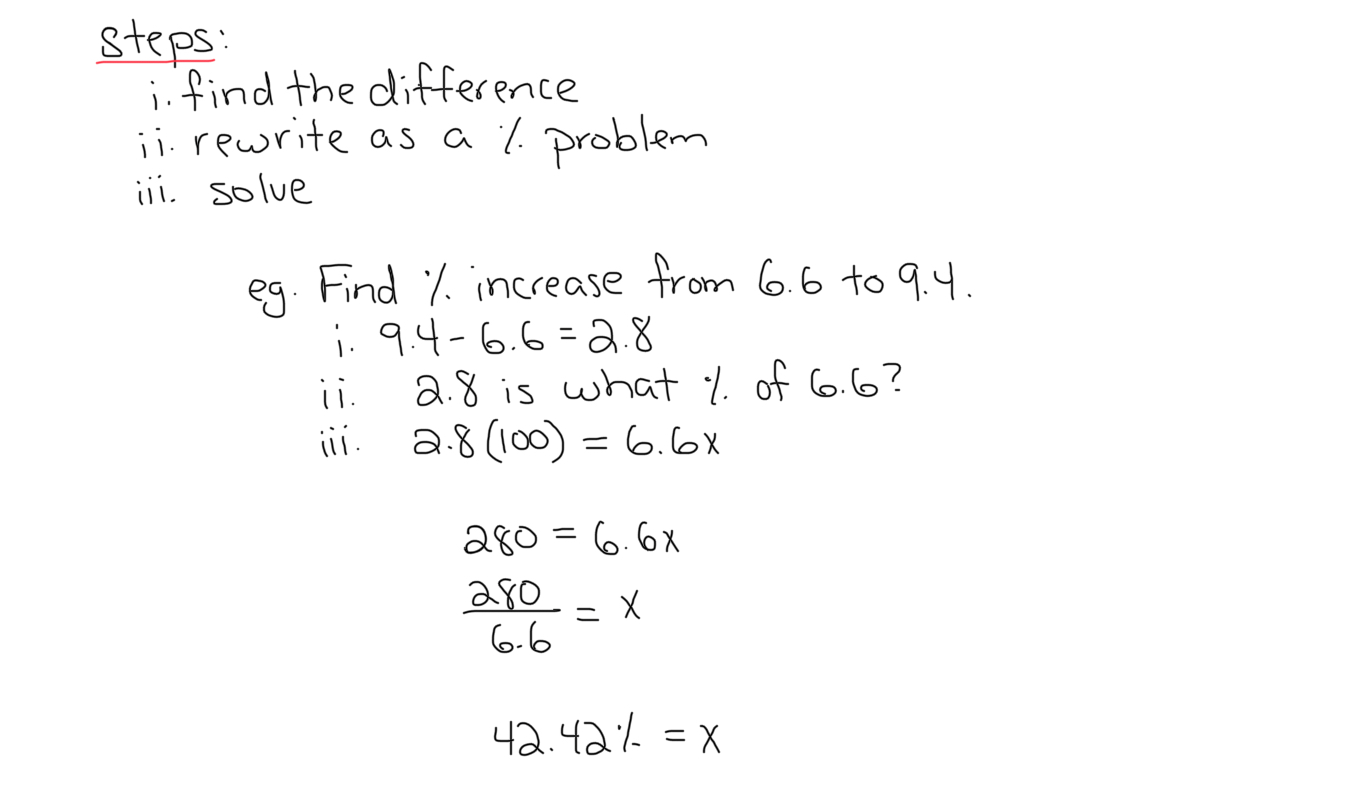 steps:
i. find the difference
ii. rewrite as a % problem
iii. solve
eg. Find % increase from 6.6 to 9.4.
i. 9.4 - 6.6 = 2.8
ii. 2.8 is what % of 6.6?
iii. 2.8(100) = 6.6x
280 = 6.6x
280
6.6
= x
42.42% = x